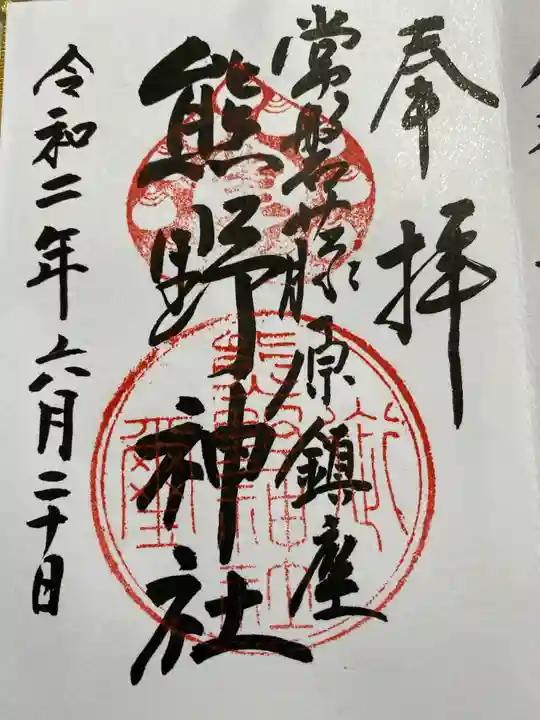 奉拝
常磐藤原鎮座
熊野神社
令和二年六月二十日